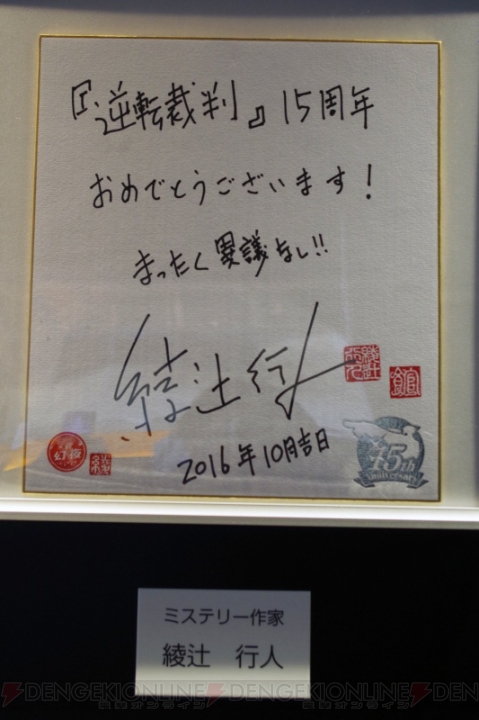 『逆転裁判』15周年
おめでとうございます！
まったく異議なし!!
綾辻行人
綾辻行人
館
幻夜
2016年10月吉日
15th
Anniversary
ミステリー作家
綾辻　行人
DENGEKIONLINE DENGEKIONLINE DENGEKIONLINE
電撃オンライン